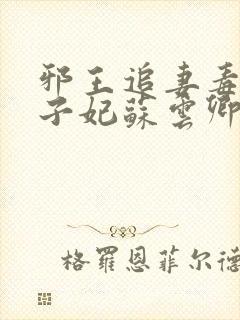 邪王追妻毒
子妃蘇雲卿
格羅恩菲尔德